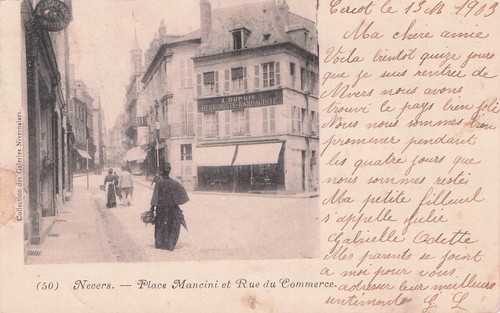 Collection des Galeries Nivernaises.
A. DUPUIS
HERBORISTE-BANDAGISTE
(50) Nevers. — Place Mancini et Rue du Commerce.
le 13 1903
Ma chère amie
Voila bientot quize jours
que je suis rentrée de
Nevers nous avons
trouvé le pays bien joli
Nous nous sommes bien
promener pendant
les quatre jours que
nous sommes restés
Ma petite filleul
s'appelle Julie
Gabrielle Odette
Mes parents se joint
a moi pour vous
adresser leur meilleurs
sentiments G L